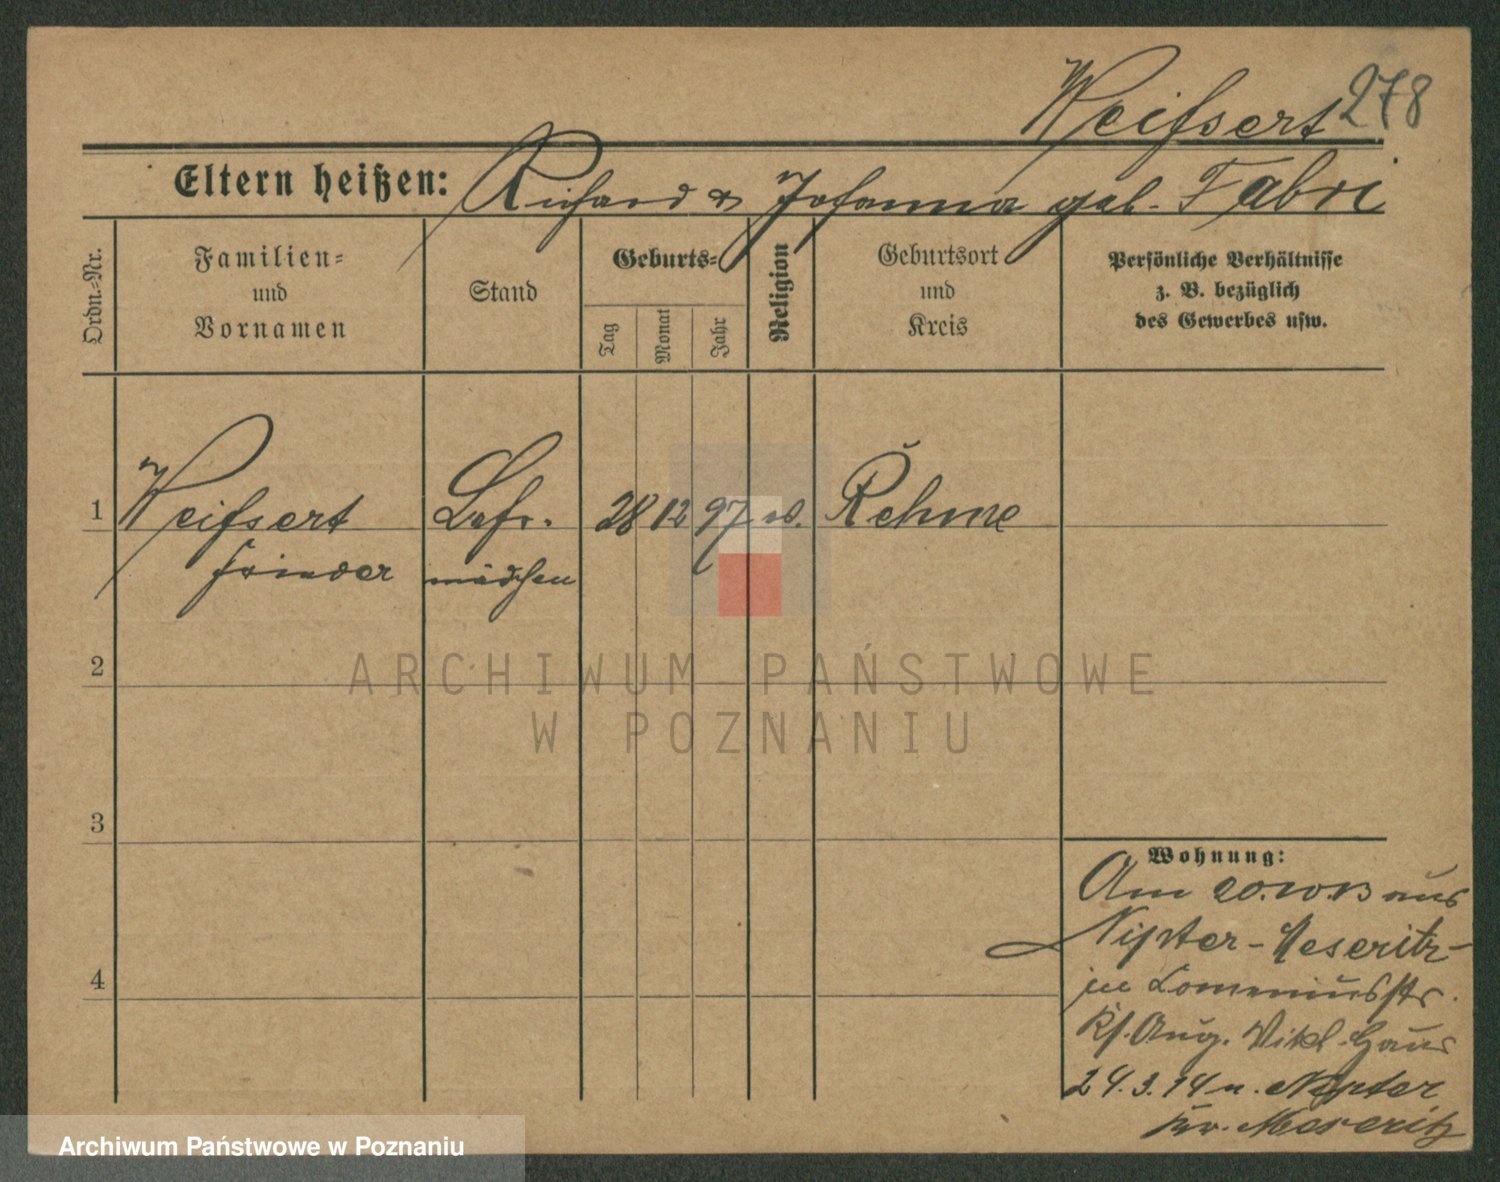 Weifsert 278
Eltern heißen: Richard & Johanna geb. Fabri
Ordn.-Nr.
Familien-
und
Vornamen
Stand
Geburts-
Tag
Monat
Jahr
Religion
Geburtsort
und
Kreis
Persönliche Verhältnisse
z. B. bezüglich
des Gewerbes usw.
1 Weifsert Lehr- 28 12 97 Rehme
mädchen
2
3
4
ARCHIWUM PAŃSTWOWE
W POZNANIU
Wohnung:
Am 20.10.13 aus
Nipter-Meseritz-
in Comeniusstr.
Aug. Vikt. Haus
24.3.14 n. Nipter
Kr. Meseritz
Archiwum Państwowe w Poznaniu